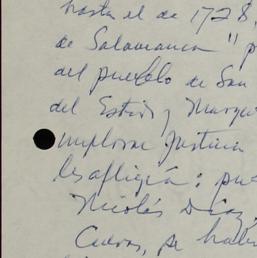 hasta el de 1728,
de Salamanca " p
del pueblo de San
del Estero y Marqu
implorar Justicia
les afligía: pue
Nicolás Díaz,
Cuevas, se habí